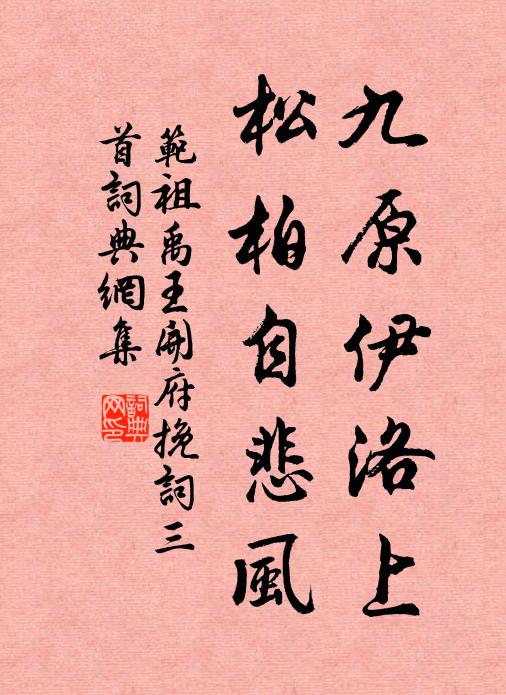 九原伊洛上
松柏自悲風
範祖禹王開府挽詞三
首詞典網集
詞典
网印